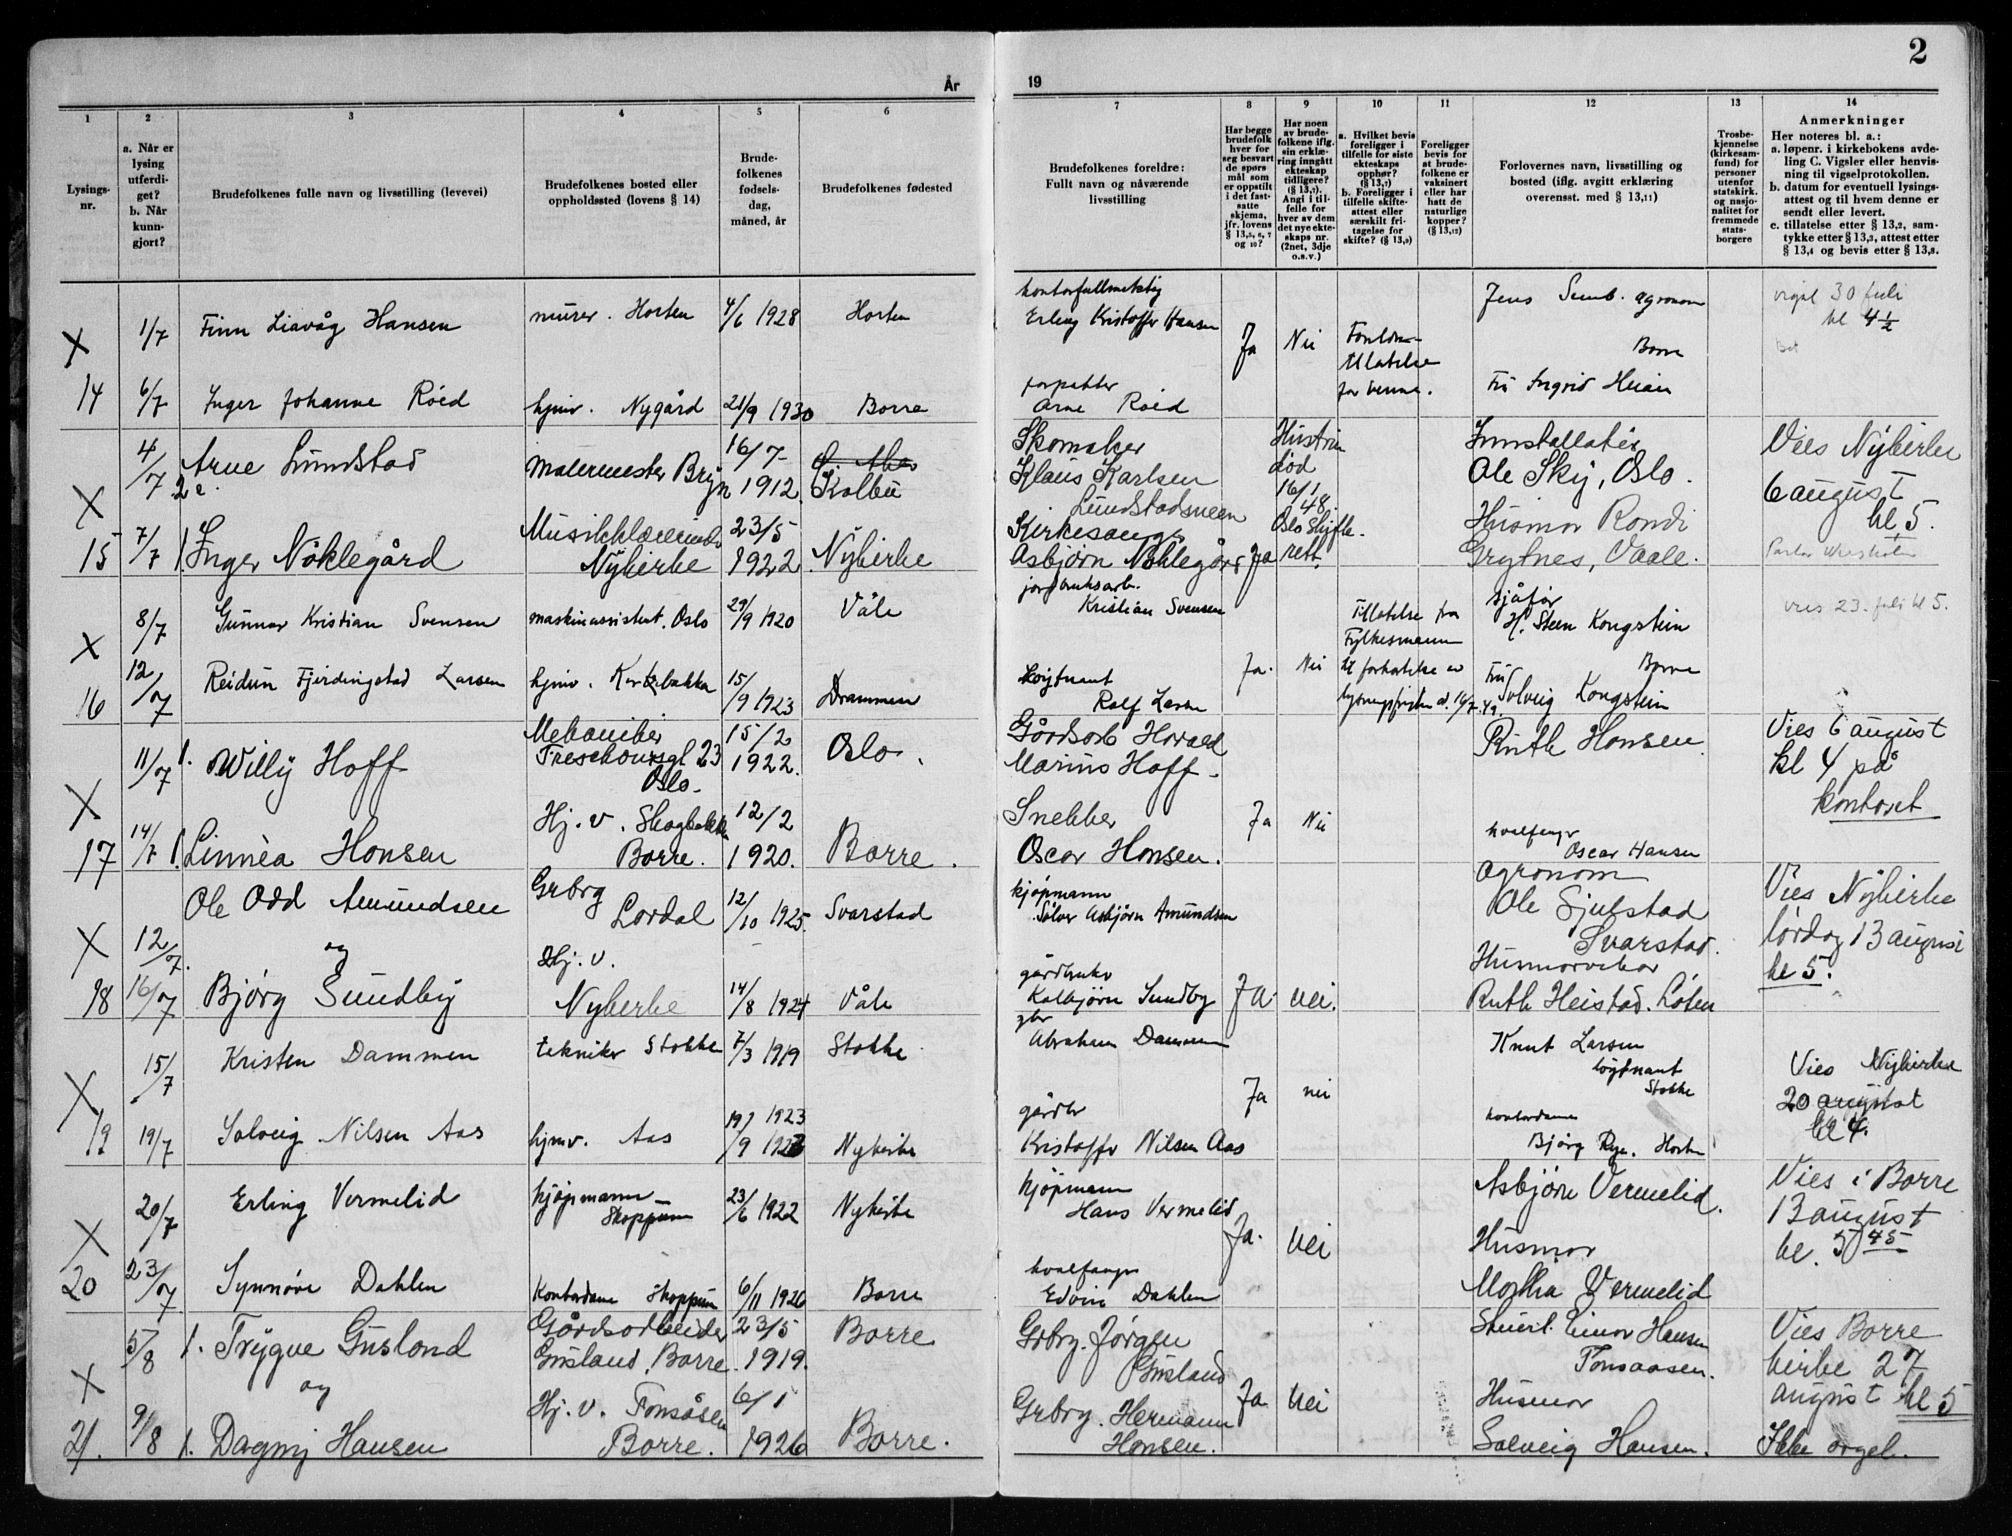 2
År
19
1
2
3
4
5
6
7
8
9
10
11
12
13
14
Lysings-
nr.
a. Når er
lysing
utferdi-
get?
b. Når
kunn-
gjort?
Brudefolkenes fulle navn og livsstilling (levevei)
Brudefolkenes bosted eller
oppholdssted (lovens § 14)
Brude-
folkenes
fødsels-
dag,
måned, år
Brudefolkenes fødested
Brudefolkenes foreldre:
Fullt navn og nåværende
livsstilling
Har begge
brudefolk
hver for
seg besvart
de spørs-
mål som
er oppstilt
i det fast-
satte
skjema,
jfr. lovens
§ 13,5, 6, 7
og 10?
Har noen
av brude-
folkene iflg.
sin erklæ-
ring inngått
ekteskap
tidligere?
(§ 13,7).
Angi i til-
felle for
hver av dem
det nye ekte-
skaps nr.
(2net, 3dje
o.s.v.)
a. Hvilket bevis
foreligger i
tilfelle for siste
ekteskaps
opphør?
(§ 13,7)
b. Foreligger i
tilfelle skifte-
attest eller
særskilt fri-
tagelse for
skifte? (§ 13,9)
Foreligger
bevis for
at brude-
folkene er
vaksinert
eller har
hatt de
naturlige
kopper?
(§ 13,12)
Forlovernes navn, livsstilling og
bosted (iflg. avgitt erklæring
overensst. med § 13,11)
Trosbe-
kjennelse
(kirkesam-
fund) for
personer
utenfor
statskirk.
og nasjo-
nalitet for
fremmede
stats-
borgere
Anmerkninger
Her noteres bl. a.:
a. løpenr. i kirkebokens avde-
ling C. Vigsler eller henvis-
ning til vigselprotokollen.
b. datum for eventuell lysings-
attest og til hvem denne er
sendt eller levert.
c. tillatelse etter § 13,2, sam-
tykke etter § 13,3, attest etter
§ 13,4 og bevis etter § 13,8.
X 1/7 Finn Liavåg Hansen murer. Horten 4/6 1928 Horten
kontorfullmektig
Erling Kristoffer Hansen
Ja Nei Foreldre-
tillatelse
for henne.
Jens Semb. agronom
Borre
30 juli
kl 4½
14 6/7 Inger Johanne Röed hjmv. Nygård 21/9 1930 Borre
forpakter
Arne Roed
Fru Ingrid Heian
X 4/7 2 e. Arne Lundstad Malermester Bryn 16/7 1912. Kolbu
Skomaker
Klaus Karlsen
Lundstadsneen
Hustru
död
16/1
48.
Oslo Skifte-
rett.
Installatör
Ole Sky, Oslo.
Vies Nykirke
6 august
kl 5.
15 7/7 1. Inger Nöklegård Musikklærerinde
Nykirke 23/5 1922 Nykirke
Kirkesanger
Asbjørn Nöklegård Ja
Husmor Rondi
Grytnes, Vaale.
X 8/7 Gunnar Kristian Svensen maskinassistent. Oslo 29/9 1920 Våle
jordbruksarb.
Kristian Svensen
Ja. Nei
Tillatelse fra
Fylkesmannen
til forkortelse av
lysningsfristen d. 14/7.49
sjåfør
H. Steen Kongstein
Borre
vies 23. juli kl 5.
16 12/7 Reidun Fjerdingstad Larsen hjmv. 15/9 1923 Drammen
løytnant
Rolf Larsen
Fru
Solveig Kongstein
X 11/7 1. Willy Hoff Mekaniker
Treschowsgt 23
Oslo. 15/2 1922. Oslo.
Gårdsarb Harald
Marius Hoff.
Ruth Hansen
Vies 6 august
kl 4 på
kontoret
17 14/7 1. Linnèa Hansen Hj. v. Skogbakken
Borre. 12/2 1920. Borre.
Snekker
Oscar Hansen.
Ja Nei
hvalfanger
Oscar Hansen
X 12/7. Ole Odd Amundsen Grbrg
Lardal 12/10 1925. Svarstad
kjøpmann
Sölver Asbjörn Amundsen
Agronom
Ole Gjulstad
Svarstad.
Vies Nykirke
lördag 13 august
kl 5.
og
18 16/7 Bjórg Sundby Hj. v.
Nykirke 14/8 1924 Våle
gårdbruker
Kolbjørn Sundby
Ja. Nei.
Husmorvikar
Ruth Heistad. Löten
X 15/7 Kristen Dammen tekniker Stokke 7/3 1919 Stokke
gbr
Abraham Dammen
Ja nei
Knut Larsen
løytnant
Stokke
Vies Nykirke
20 august
kl 4.
19 19/7 Solveig Nilsen Aas hjmv. Aas 19/9 1923 Nykirke
gårdbr
Kristoffer Nilsen Aas
kontordame
Bjørg Rye. Horten
X 20/7 Erling Vermelid kjøpmann
Skoppum 23/6 1922 Nykirke
kjøpmann
Hans Vermelid
Ja. Nei
Asbjörn Vermelid.
Vies i Borre
13 august
kl. 5 45
20 23/7 Synnöve Dahlen Kontordame Skoppum 6/11 1926 Borre
hvalfanger
Edvin Dahlen
Husmor
Martha Vermelid
X 5/8 1. Trygve Gusland Gårdsarbeider
Gusland, Borre 23/5 1919. Borre
Grbrg. Jörgen
Gusland
Ja Nei
Stuert. Einar Hansen
Tonsaasen.
Vies Borre
kirke 27
august kl 5
og
21. 9/8 1. Dagny Hansen Hj. v. Tonsåsen
Borre. 6/1 1926 Borre.
Grbrg. Hermann
Hansen.
Husmor
Solveig Hansen.
Ikke orgel.